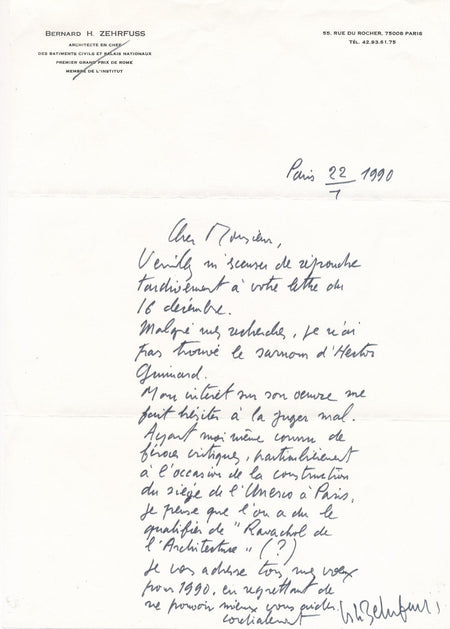 BERNARD H. ZEHRFUSS
ARCHITECTE EN CHEF
DES BATIMENTS CIVILS ET PALAIS NATIONAUX
PREMIER GRAND PRIX DE ROME
MEMBRE DE L'INSTITUT
55, RUE DU ROCHER, 75008 PARIS
TÉL. 42.93.51.75
Paris 22/1 1990
Cher Monsieur,
Veuillez m'excuser de répondre
tardivement à votre lettre du
16 décembre.
Malgré mes recherches, je n'ai
pas trouvé le surnom d'Hector
Guimard.
Mon intérêt sur son oeuvre me
fait hésiter à la juger mal.
Ayant moi même connu de
féroces critiques, particulièrement
à l'occasion de la construction
du siège de l'Unesco à Paris,
je pense que l'on a du le
qualifier de "Ravachol de
l'Architecture" (?)
Je vous adresse tous mes voeux
pour 1990, en regrettant de
ne pouvoir mieux vous guider.
cordialement